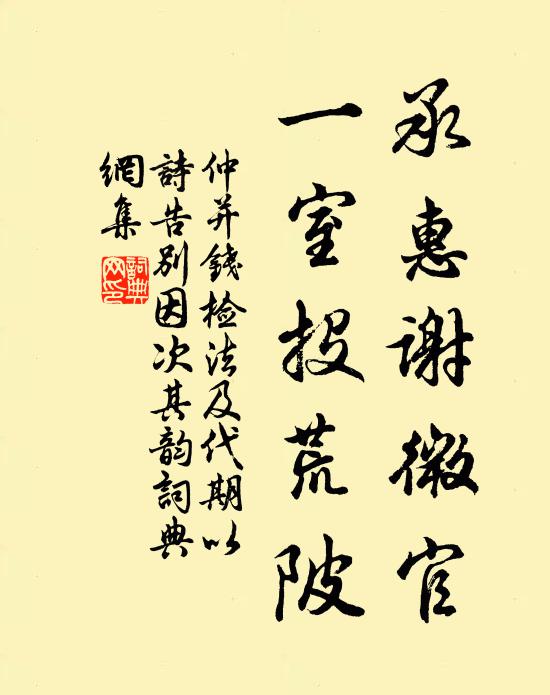 承惠谢微官
一室投荒陂
仲并錢检法及代期以
詩告别因次其韵詞典
網集
詞典網印